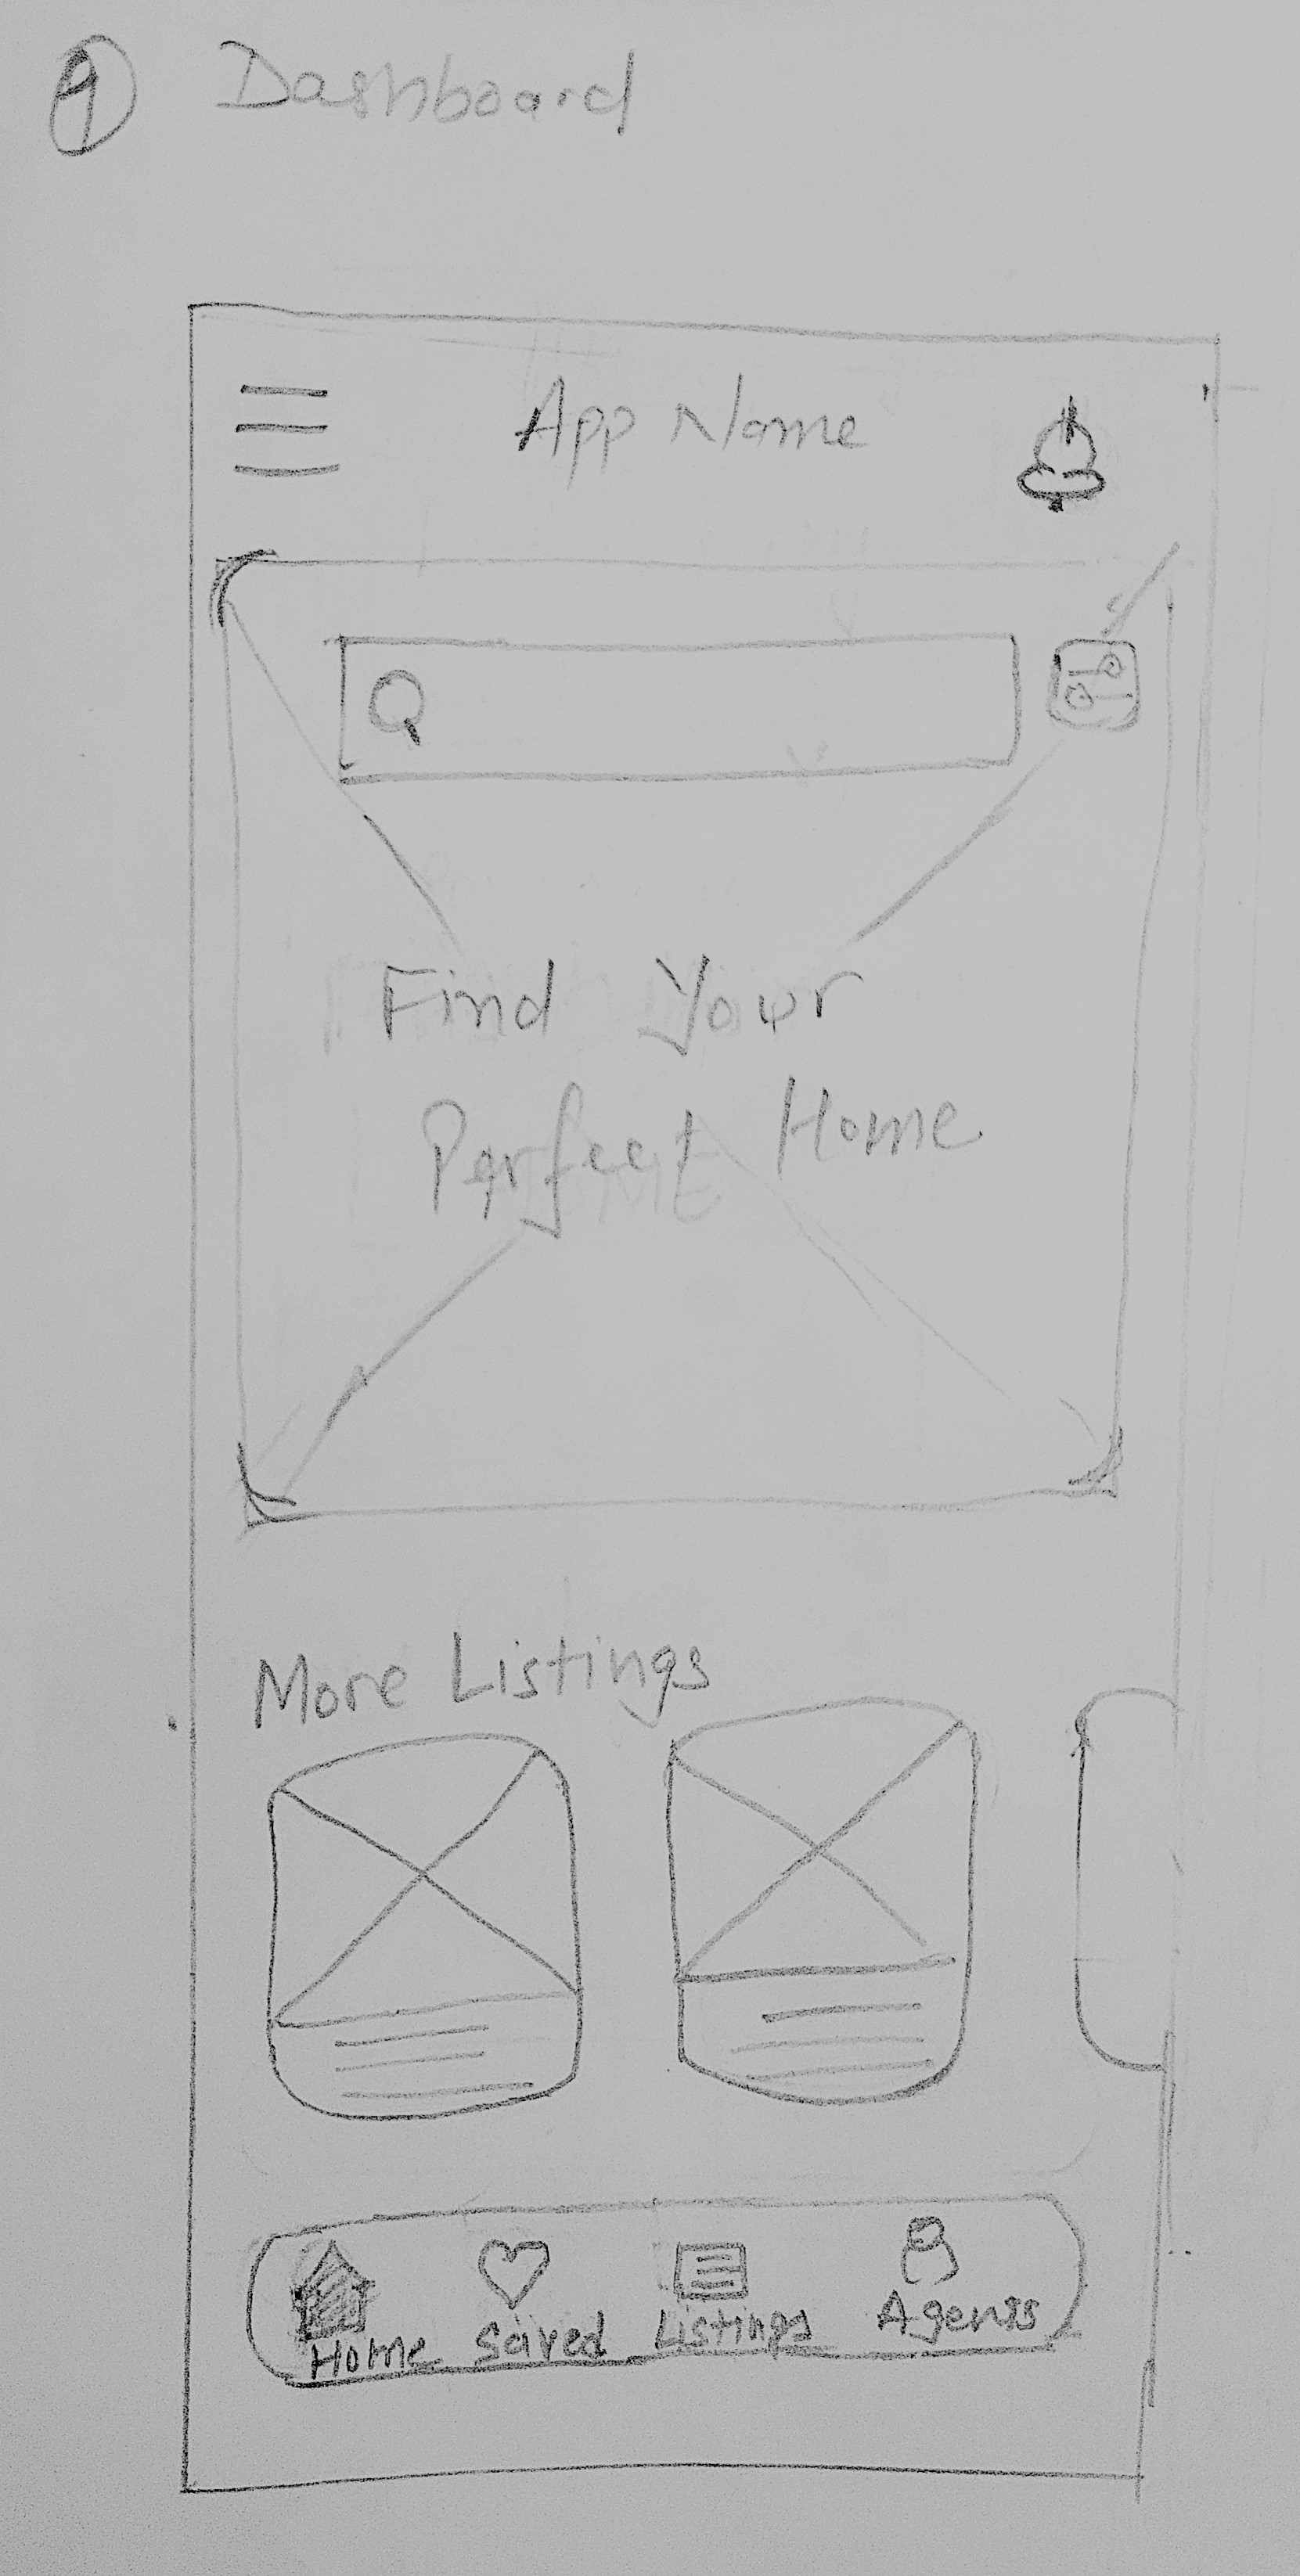 9 Dashboard
App Name
Find Your
Perfect Home
More Listings
Home Saved Listings Agents